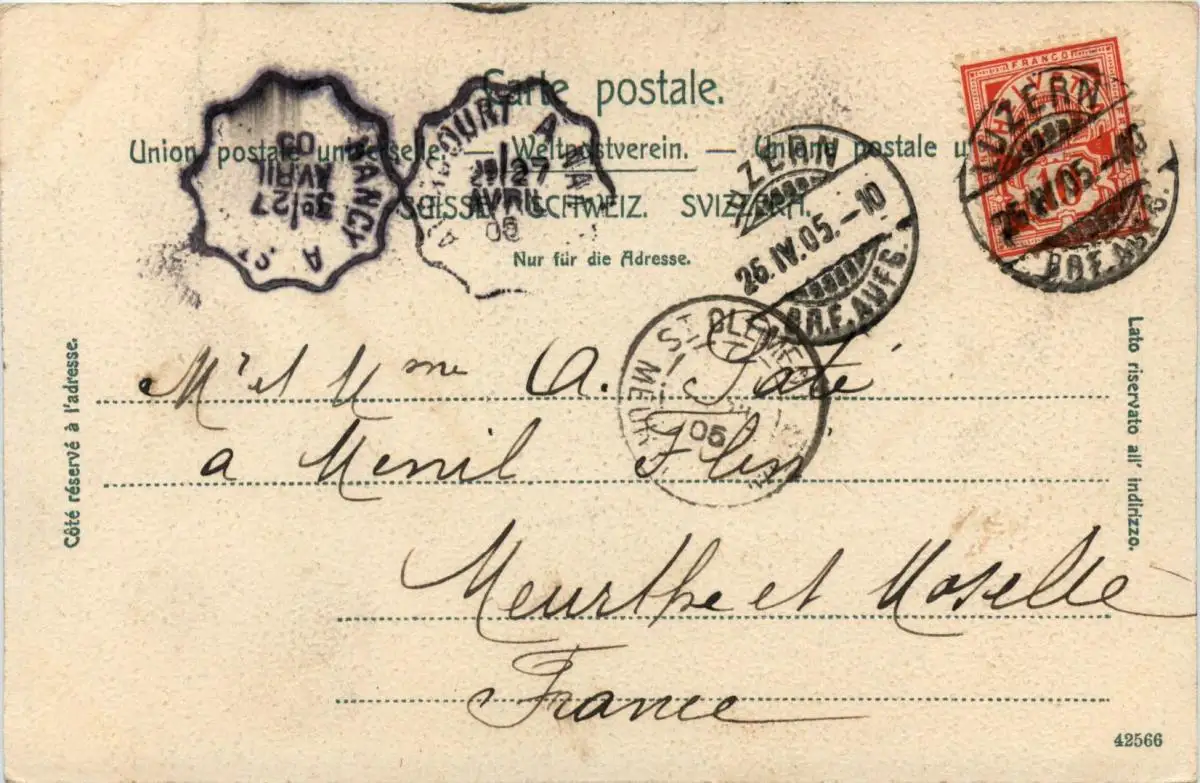 Carte postale.
Union postale universelle. — Weltpostverein. — Unione postale
SUISSE. SCHWEIZ. SVIZZERA.
Nur für die Adresse.
FRANCO
HELVETIA
10
LUZERN
26.IV.05.-10
BRF.AUFG.
LUZERN
26.IV.05.-10
BRF.AUFG.
A
27
AVRIL
05
A
27
AVRIL
05
ST CLEMENT
MEUR
05
Côté réservé à l'adresse.
Lato riservato all' indirizzo.
Mr et Mme A.
a Menil Flin
Meurthe et Moselle
France
42566